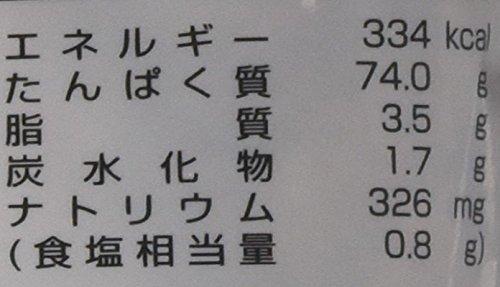 エネルギー 334 kcal
たんぱく質 74.0 g
脂質 3.5 g
炭水化物 1.7 g
ナトリウム 326 mg
(食塩相当量 0.8 g)